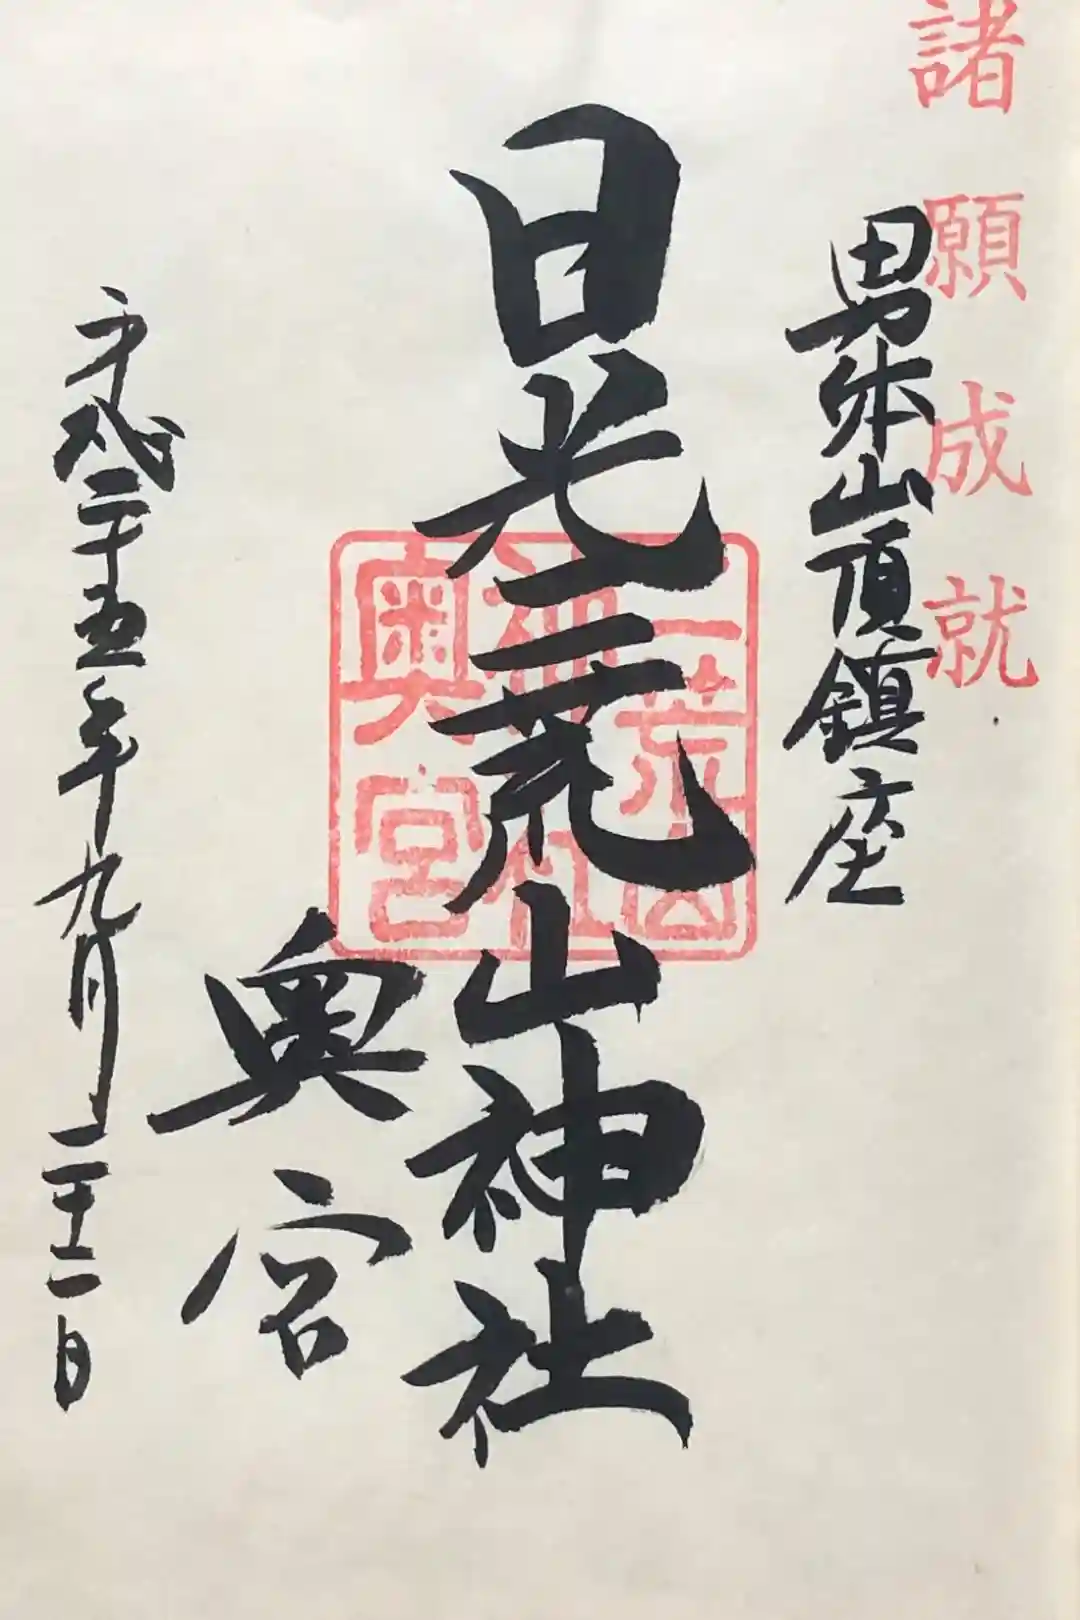 諸願成就
男体山頂鎮座
日光二荒山神社
奥宮
二荒山
神社
奥宮
平成二十五年九月二十一日